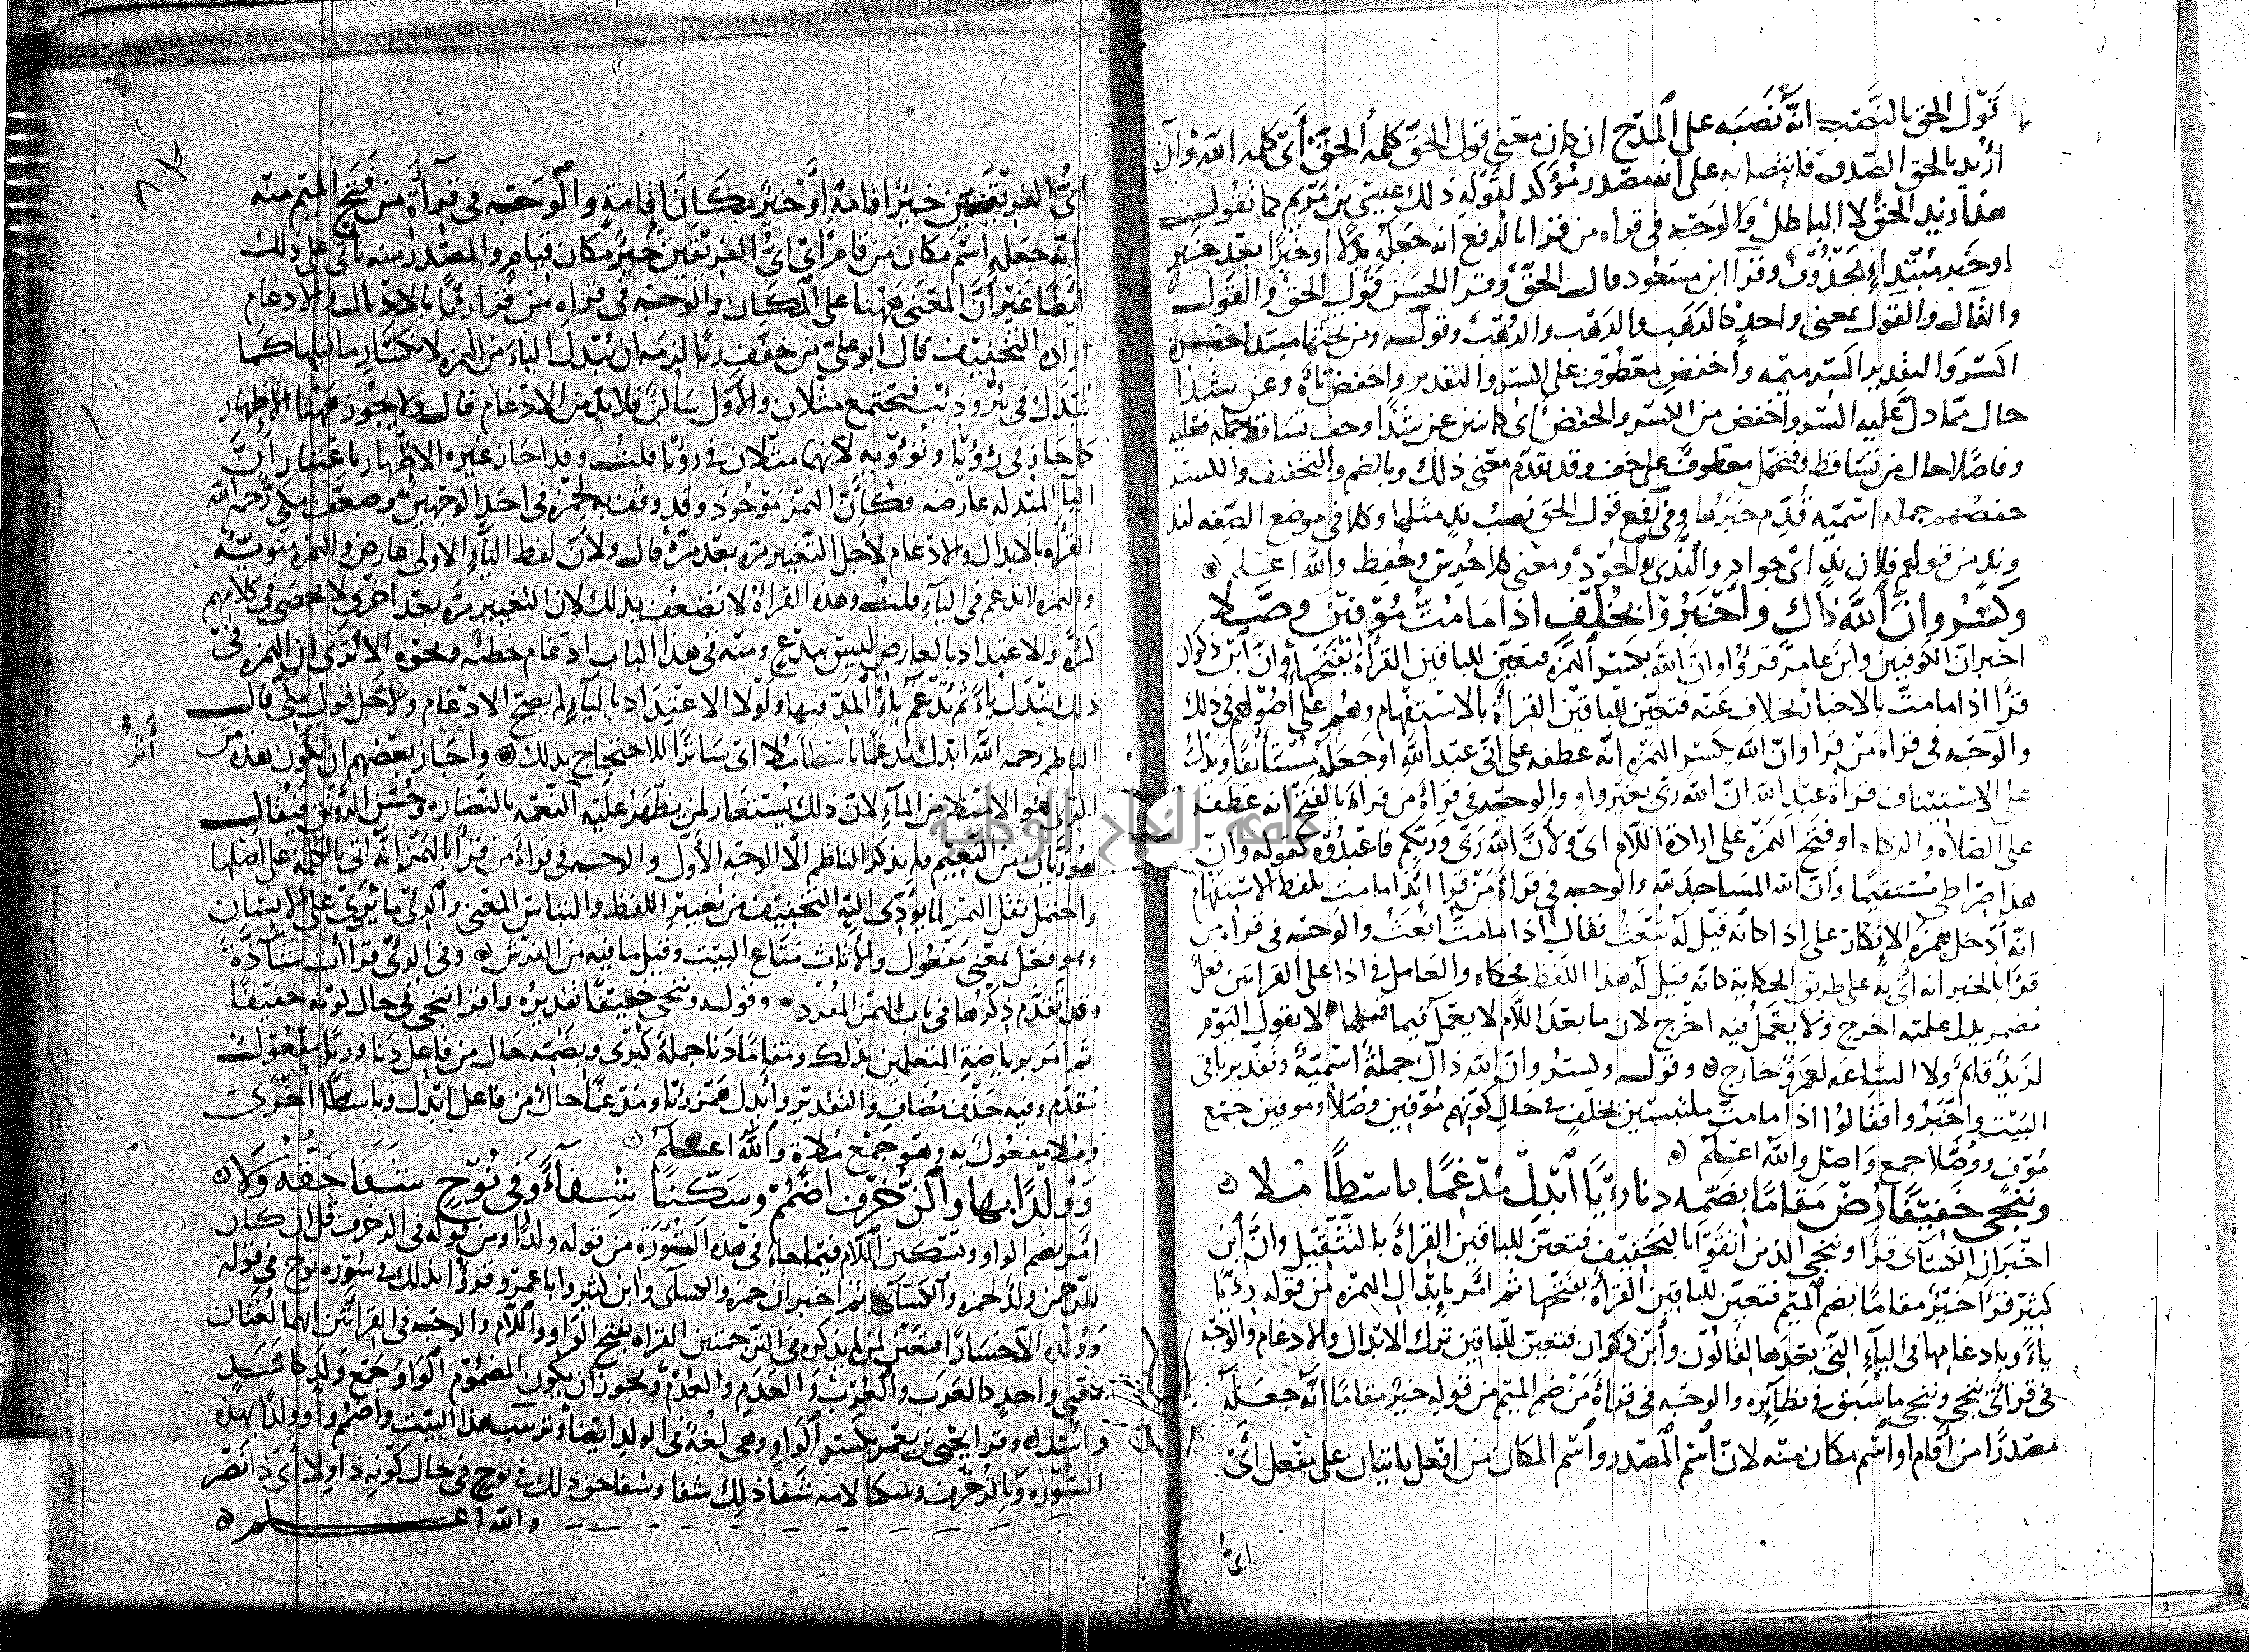 قول الحق بالنصب انه نصبه على المدح ان كان معنى قول الحق كلمة الحق أي كلمة الله وان
أريد بالحق الصدق فانتصابه على انه مصدر مؤكد لقوله ذلك عيسى بن مريم كما تقول
هذا زيد الحق لا الباطل والوجه في قراه من قرا بالرفع انه جعله بدلا او خبرا بعد خبر
او خبر مبتداء محذوف وقرا ابن مسعود قال الحق وقرا الحسن قول الحق والقول
والقال والقول بمعنى واحد كالرهب والرهب والرهب وقوله ومن تحتها مبتدا خبره
اكسر والتقدير اكسر ميمه واخفض معطوف على اكسر والتقدير واخفض تاه وعن شذا
حال مما دل عليه اكسر واخفض من الكسر والخفض اي كاينين عن شذا وخف تساقط جمله فعليه
وفاصلا حال من تساقط وتحمل معطوف على خف وقد تقدم معنى ذلك وبالضم والتخفيف والكسر
حفصهم جمله اسميه قدم خبرها وفي رفع قول الحق نصب ند مثلها وكلا في موضع الصفه لند
وند من قولهم فلان ند اي جواد والندى الجود ومعنى كلا حرس وحفظ والله اعلم
وكسر وان الله ذاك واخبروا بخلف اذا ما مت موفين وصلا
اخبر ان الكوفيين وابن عامر قرؤا وان الله بكسر الهمزة فتعين للباقين القراة بفتحها وان ابن ذكوان
قرا اذا ما مت بالاخبار بخلاف عنه فتعين للباقين القراة بالاستفهام وهم على اصولهم في ذلك
والوجه في قراه من قرا وان الله بكسر الهمزه انه عطفه على اني عبد الله او جعله مستانفا ويدل
على الاستيناف قراة عبد الله ان الله ربي بغير واو والوجه في قراة من قراه بالفتح انه عطفه
على الصلاة والزكاه او فتح الهمزة على ارادة اللام اي ولان الله ربي وربكم فاعبدوه كقوله وان
هذا صراطي مستقيما وان المساجد لله والوجه في قراة من قرا ائذا ما مت بلفظ الاستفهام
انه ادخل همزه الانكار على اذا كانه قيل له تبعث فقال اذا ما مت ابعث والوجه في قراه من
قرا بالخبر انه اتى به على طريق الحكاية كانه قيل له هذا اللفظ فحكاه والعامل في اذا على القراتين فعل
مضمر يدل عليه اخرج ولا يعمل فيه اخرج لان ما بعد اللام لا يعمل فيما قبلها لا تقول اليوم
لزيد قائم ولا الساعه لعمرو خارج وقوله وكسر وان الله ذاك جملة اسمية وتقدير باقي
البيت واخبروا فقالوا اذا ما مت ملتبسين بخلف في حال كونهم موفين وصلا وموفين جمع
موف ووصلا جمع واصل والله اعلم
وننجي خفيفا رض مقاما بضمه دنا رءيا ابدل مدغما باسطا ملا
اخبر ان الكسائي قرا وننجي الذين اتقوا بالتخفيف فتعين للباقين القراة بالتثقيل وان ابن
كثير قرا خير مقاما بضم الميم فتعين للباقين القراة بفتحها ثم امر بابدال الهمزه من قوله رءيا
ياء وبادغامها في الياء التي بعدها لقالون وابن ذكوان فتعين للباقين ترك الابدال والادغام والوجه
في قراتي ننجي وننجي ما سبق في نظائره والوجه في قراة من ضم الميم من قوله خير مقاما انه جعله
مصدرا من اقام او اسم مكان منه لان اسم المصدر واسم المكان من افعل ياتيان على مفعل اي
اي
اي الفريقين خير اقامة او خير مكان اقامة والوجه في قراة من فتح الميم منه
انه جعله اسم مكان من قام اي اي الفريقين خير مكان قيام والمصدر منه ياتي على ذلك
ايضا غير ان المعنى ههنا على المكان والوجه في قراه من قرا ريا بالابدال والادغام
اراده التخفيف قال ابو علي من خفف ريا لزمه ان يبدل الياء من الهمزه لانكسار ما قبلها كما
تبدل في بئر وذئب فيجتمع مثلان والاول ساكن فلابد من الادغام قال ولا يجوز ههنا الاظهار
كما جاز في رؤيا وتؤويه لانهما مثلان في رؤيا قلت وقد اجاز غيره الاظهار باعتبار ان
اليا المبدله عارضه فكان الهمز موجود وقد وقف به لحمزه في احد الوجهين وضعف مكي رحمه الله
القراه بالابدال والادغام لاجل التغيير مره بعد مرة قال ولان لفظ الياء الاولى عارض والهمزه منوية
والهمزه لا تدغم في الياء قلت وهذه القراة لا تضعف بذلك لان التغيير مره بعد اخرى لا يحصى في كلامهم
كثرة والاعتداد بالعارض ليس ببدع ومنه في هذا الباب ادغام خطيه ونحوه الا ترى ان الهمزه في
ذلك تبدل ياء ثم تدغم ياء المد فيها ولولا الاعتداد بالياء لم يصح الادغام ولاجل قول مكي قال
الناظم رحمه الله ابدل مدغما باسطا ملا اي ساترا للاحتجاج بذلك واجاز بعضهم ان تكون هذه من
الري هو الامتلا من الماء لان ذلك يستعار لمن يظهر عليه النعمه بالنضاره وحسن الرونق فيقال
هو ريان من النعيم ولم يذكر الناظم الا الوجه الاول والوجه في قراة من قرا بالهمز انه اتى بالكلمة على اصلها
واحتمل ثقل الهمز لما يؤدي اليه التخفيف من تغيير اللفظ والتباس المعنى والرئي ما يرى على الانسان
وهو فعل بمعنى مفعول والاثاث متاع البيت وقيل ما فيه من الفرش وفي الرئي قراات شاذة
وقد تقدم ذكرها في باب الهمز المفرد وقوله وننجي خفيفا تقديره واقرا ننجي في حال كونه خفيفا
ثم امر برياضة المتعلمين بذلك ومقاما دنا جملة كبرى وبضمه حال من فاعل دنا وريا مفعول
تقدم وفيه حذف مضاف والتقدير وابدل همز رئيا ومدغما حال من فاعل ابدل وباسطا اخرى
وملا مفعول به وهو جمع ملاة والله اعلم
وولدا بها والزخرف اضمم وسكنا شفاء وفي نوح شفا حقه ولا
امر بضم الواو وتسكين اللام فيما جاء في هذه السورة من قوله ولدا ومن قوله في الزخرف قل ان كان
للرحمن ولد لحمزه والكسائي ثم اخبر ان حمزه والكسائي وابن كثير وابا عمرو قرؤا بذلك في سورة نوح في قوله
وولده الا خسارا فتعين لمن لم يذكره في الترجمتين القراه بفتح الواو واللام والوجه في القراتين انهما لغتان
بمعنى واحد كالعرب والعرب والعدم والعدم ويجوز ان يكون المضموم الواو جمع ولد كاسد
واسد وقرا يحيى بن يعمر بكسر الواو وهي لغة في الولد ايضا وترتيب هذا البيت واضمم واو ولدا بهذه
السوره وبالزخرف وسكنا لامه شفا ذلك شفا وشفا حق ذلك في نوح في حال كونه ذا ولا اي ذا نصر
والله اعلم